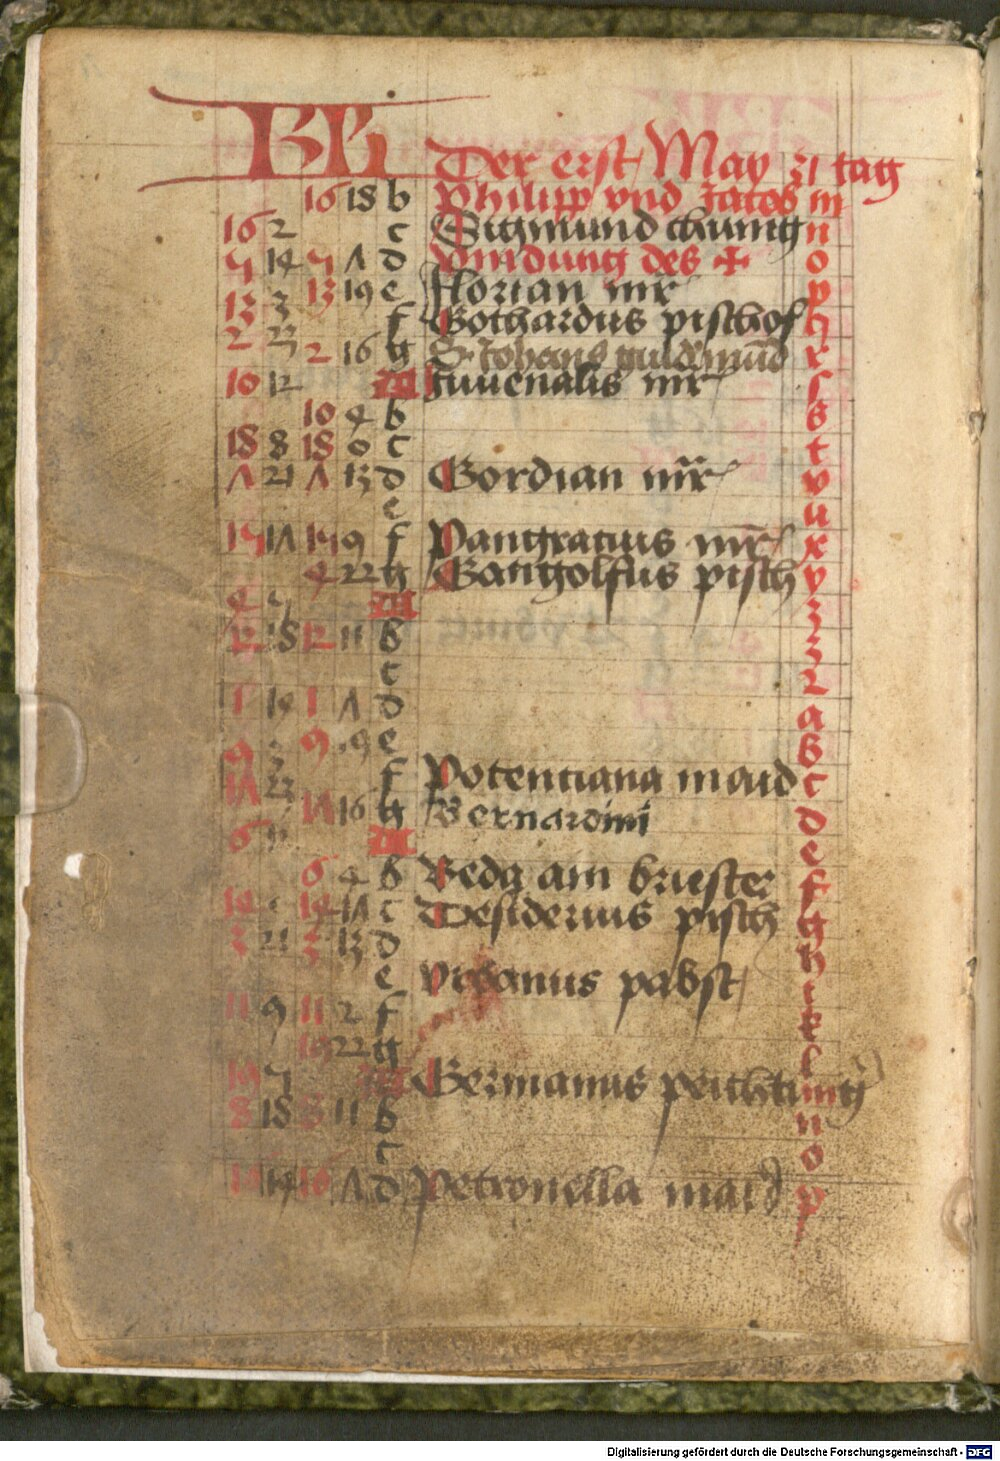 KL Der erst May 31 tag
16 18 b Philipp vnd Jacob m
16 2 c Sigmund chunig n
5 14 5 Λ d Vindung des ✠ o
13 19 e Florian mr p
13 3 f Gothardus pischof q
2 23 2 16 g S Johans guldmund r
10 12 A Juuenalis mr ſ
10 4 b s
18 8 18 0 c t
Λ 21 Λ 13 d Gordian mr v
e u
15 1Λ 15 9 f Pangratius mr x
4 22 g Gangolfus pisch y
4 5 A z
12 18 12 11 b 3
c 2
1 14 1 Λ d a
9 3 9 19 e b
1Λ 23 f Potentiana maid c
1Λ 16 g Bernardini d
6 A e
6 4 b Beda ain briester f
14 14 1Λ c Desiderius pisch g
3 21 3 13 d h
e Vrbanus pabst i
11 9 11 2 f k
19 22 g l
19 5 A Germanus peichtung m
8 18 8 11 b n
c o
16 14 16 Λ d Petronella maid p
Digitalisierung gefördert durch die Deutsche Forschungsgemeinschaft - DFG